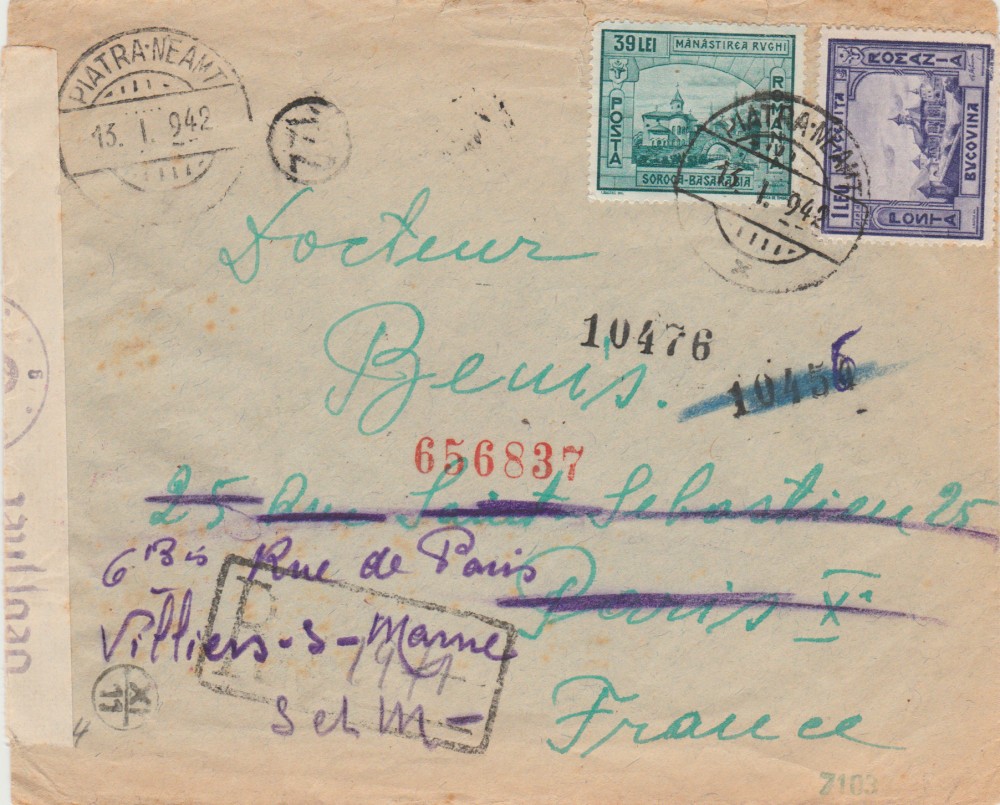 PIATRA-NEAMȚ
13. I. 942
39 LEI MĂNĂSTIREA RUGHI
POSTA
ROMANIA
SOROCA-BASARABIA
ROMANIA
POSTA
BUCOVINA
PIATRA-NEAMȚ
13. I. 942
Docteur
Benis.
10476
10456
656837
25 Rue Saint Sebastien 25
6 Bis Rue de Paris
Paris X
Villiers-S-Marne
R
S et M-
France
XI
11
7103